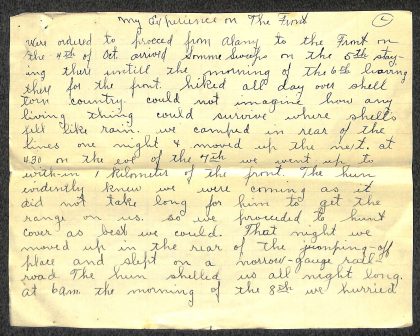 My Experience on The Front
were ordered to proceed from Alany to the Front on
the 4th of Oct. arrived Somme Sueeps on the 5th stay-
ing there untill the morning of the 6th leaving
there for the front. hiked all day over shell
torn country. could not imagine how any
living thing could survive where shells
fell like rain. we camped in rear of the
lines one night & moved up the next. at
430 on the eve of the 7th we went up to
with-in 1 kilometer of the front. The hun
evidently knew we were coming as it
did not take long for him to get the
range on us. so we proceeded to hunt
cover as best we could. That night we
moved up in the rear of the jumping-off
place and slept on a norrow-gauge rail-
road The hun shelled us all night long.
at 6am the morning of the 8th we hurried